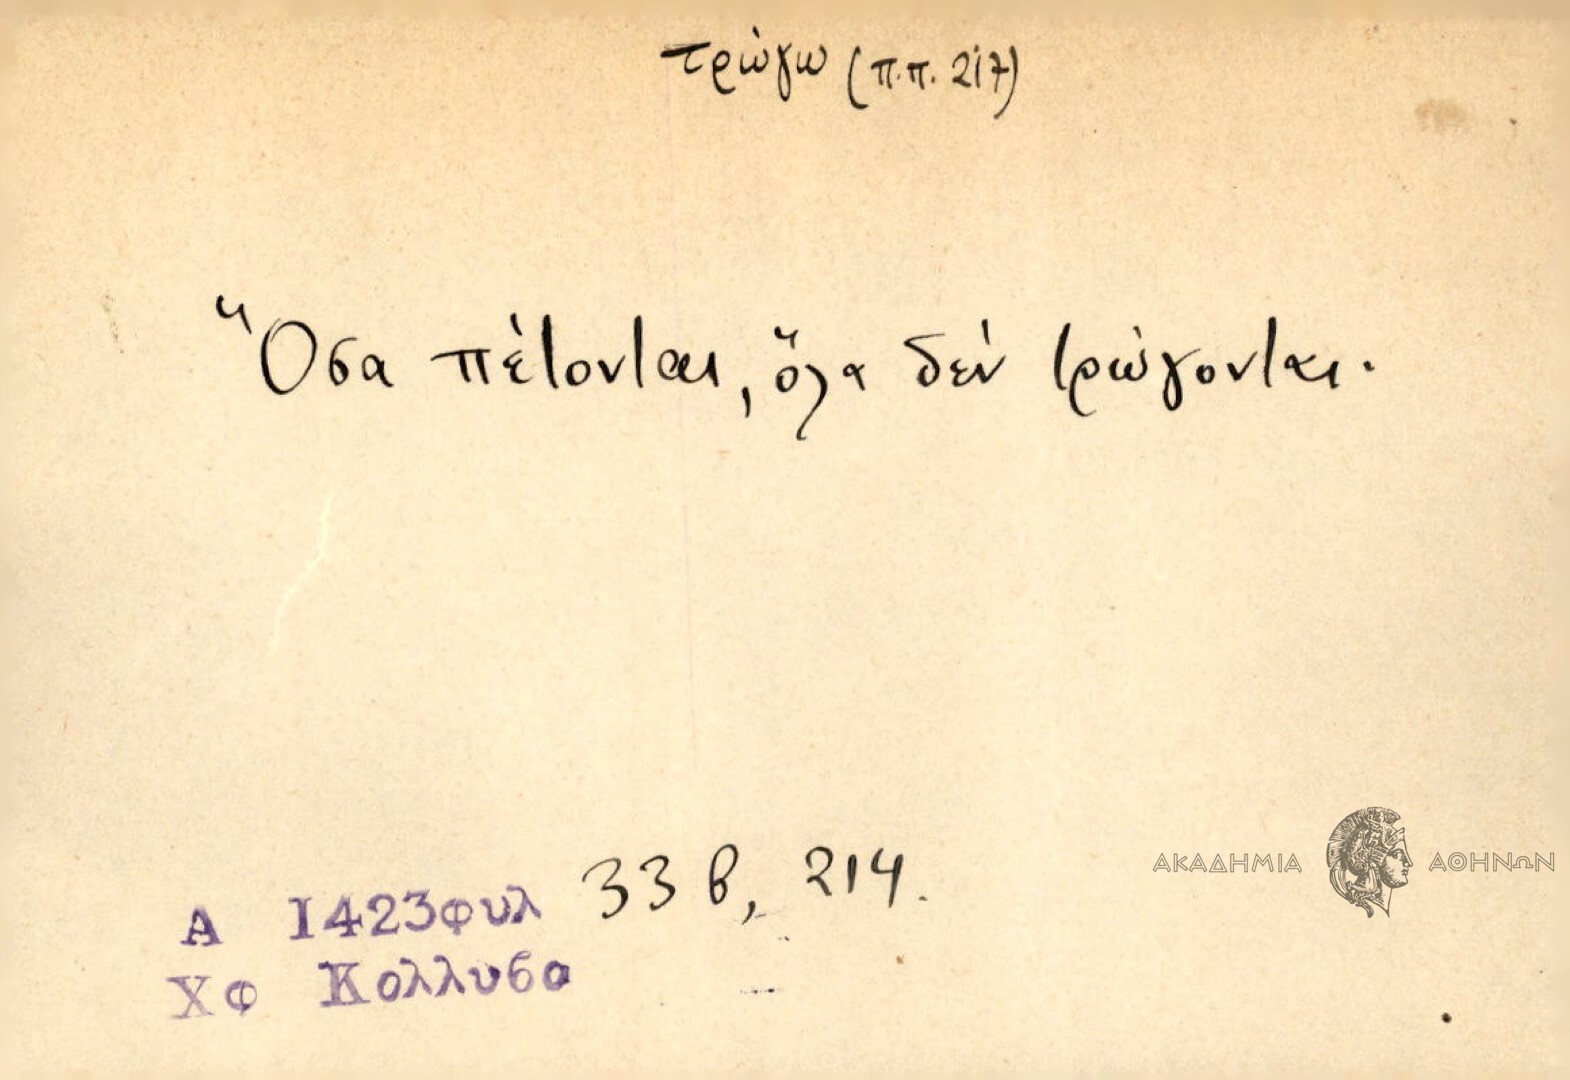 τρώγω (π.π. 217)
Ὅσα πέτονται, ὅλα δέν τρώγονται.
Α 1423φυλ 33 β, 214.
Χφ Κολλυβα
ΑΚΑΔΗΜΙΑ ΑΘΗΝΩΝ